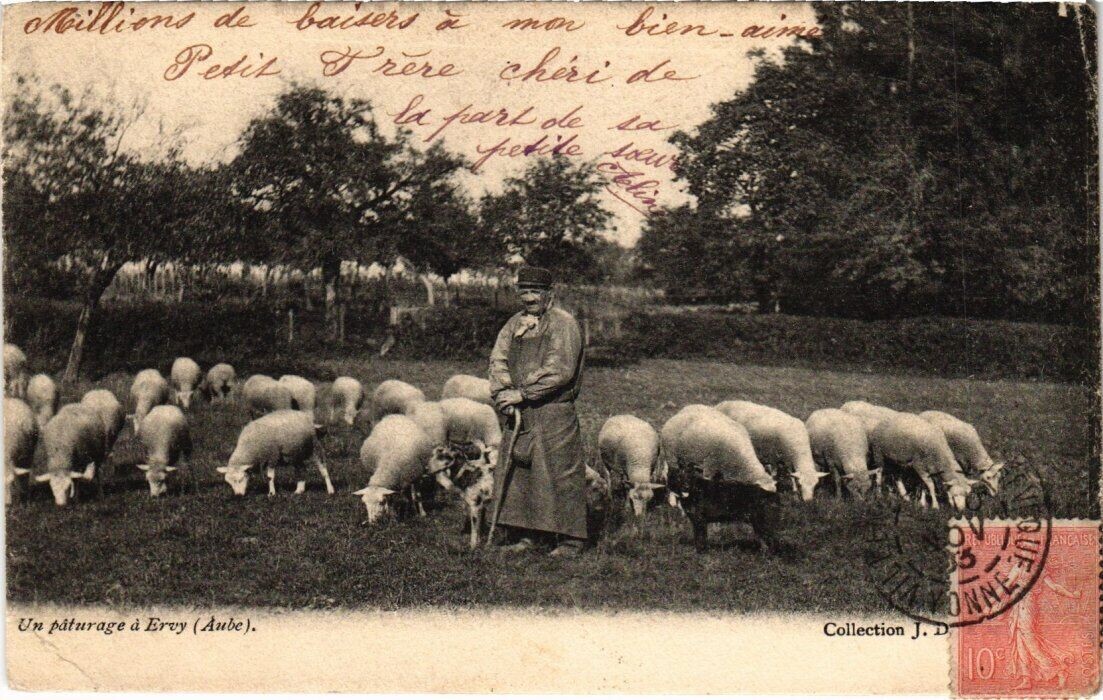 Millions de baisers à mon bien-aimé
Petit Frère chéri de
la part de sa
petite sœur
Un pâturage à Ervy (Aube).
Collection J. D
NOV
03
YONNE
REPUBLIQUE FRANÇAISE
10c